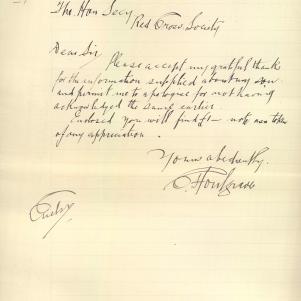 The Hon Secy
Red Cross Society
Dear Sir
Please accept my grateful thanks
for the information supplied about my son
and permit me to apologise for not having
acknowledged the same earlier.
Enclosed you will find £1- note as a token
of my appreciation.
Yours obediently.